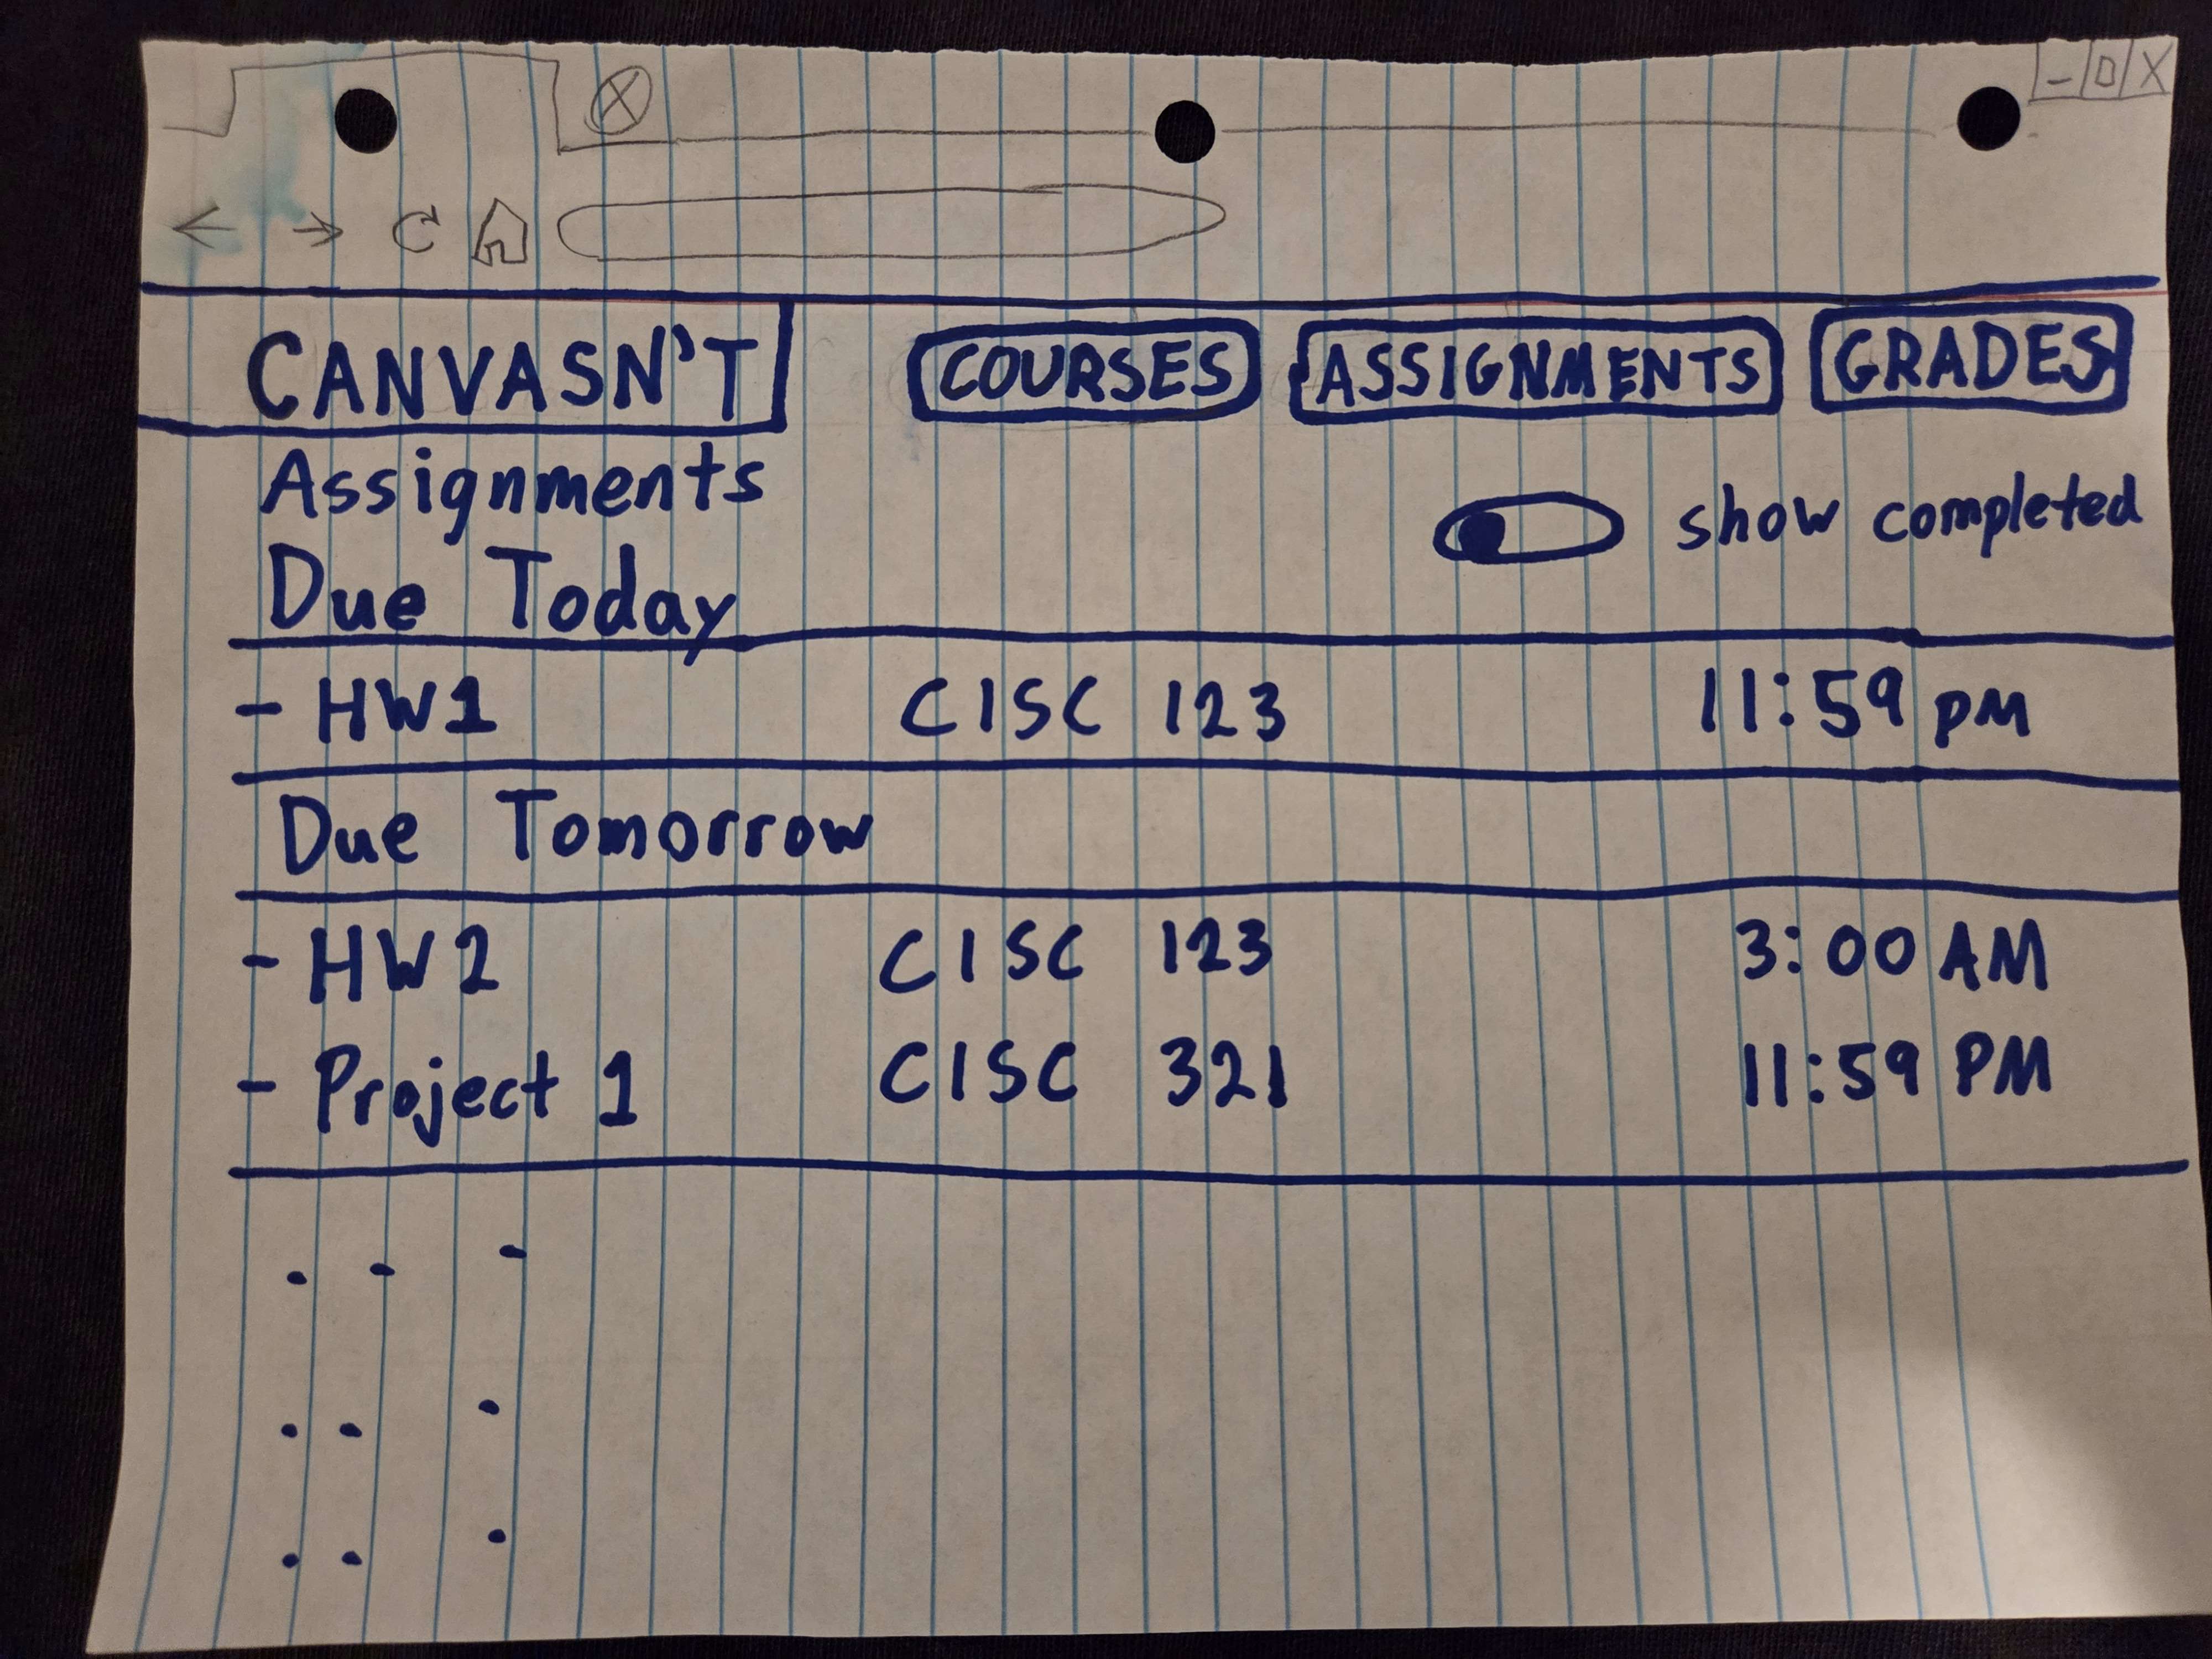 CANVASN'T COURSES ASSIGNMENTS GRADES
Assignments
show completed
Due Today
- HW1 CISC 123 11:59 PM
Due Tomorrow
- HW2 CISC 123 3:00 AM
- Project 1 CISC 321 11:59 PM